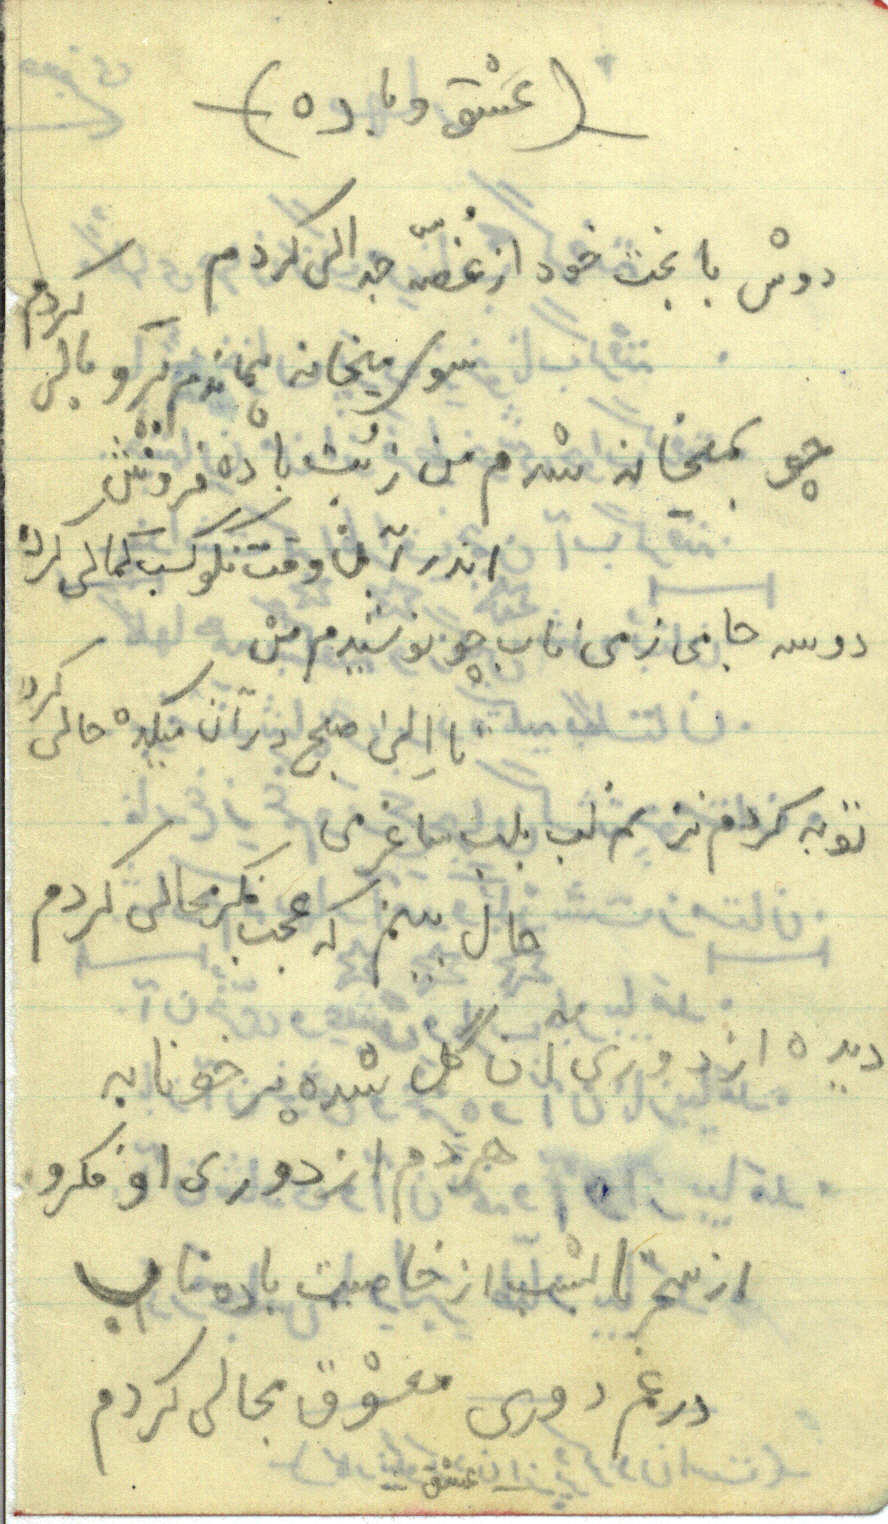 (عشق و باده)
دوش با بخت خود از غصّه جدالی کردم
سوی میخانه بماندم پرو بالی کردم
چو بمیخانه شدم من ز بُت باده فروش
اندر آن وقت نکو کسب کمالی کردم
دو سه جامی ز می ناب چو نوشیدم من
تا اِلیٰ صبح در آن میکده حالی کردم
توبه کردم نزنم لب بلب ساغر می
حال بینم که عجب فکر محالی کردم
دیده از دوری آن گل شده پر خونابه
هردم از دوری او فکر و
از سحر تا بشب از خاصیت باده ناب
در غم دوری معشوق مجالی کردم
عشق